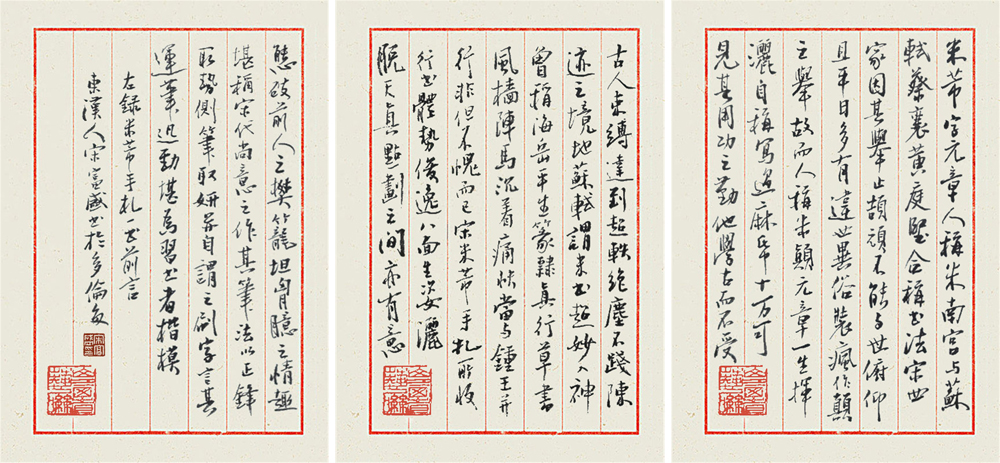 米芾字元章人稱米南宮与蘇
軾蔡襄黃庭堅合稱书法宋四
家因其舉止頡頏不能与世俯仰
且平日多有違世異俗裝瘋作顛
之舉故而人稱米顛元章一生揮
灑自稱寫過麻牋十万可
見其用功之勤他學古而不受
古人束縛達到超軼絕塵不踐陳
迹之境地蘇軾謂米书超妙入神
曾稱海岳平生篆隸真行草書
風檣陣馬沉着痛快當与鍾王并
行非但不愧而已宋米芾手札所收
行书體勢俊逸八面生姿灑
脫天真點劃之間亦有意
態破前人之樊籠坦胷臆之情趣
堪稱宋代尚意之作其筆法以正鋒
取勢側筆取妍并自謂之刷字言其
運筆迅勁堪為習书者楷模
左録米芾手札一书前言
東漢人宋盛书於多倫多